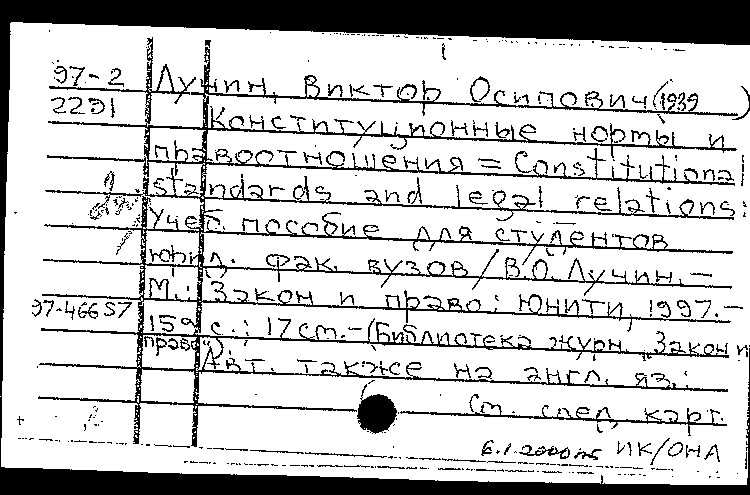 97-2 Лучин, Виктор Осипович (1939 )
2291 Конституционные нормы и
правоотношения = Constitutional
standards and legal relations:
Учеб. пособие для студентов
юрид. фак. вузов / В.О. Лучин. —
М.: Закон и право: ЮНИТИ, 1997. —
97-46657 159 с.; 17 см. — (Библиотека журн. „Закон и
право").
Авт. также на англ. яз.:
См. след. карт.
6.1.2000 ИК/ОНА